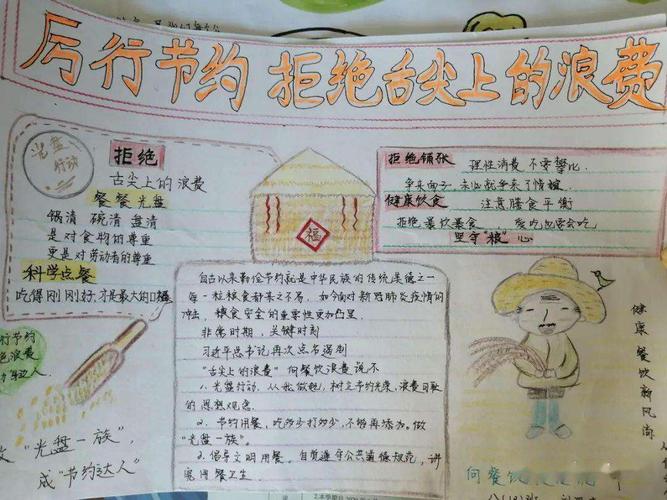 厉行节约 拒绝舌尖上的浪费
光盘
行动
拒绝
舌尖上的浪费
餐餐光盘
锅清 碗清 盘清
是对食物的尊重
更是对劳动者的尊重
科学点餐
吃得刚刚好,才是最大的口福
拒绝铺张 理性消费 不要攀比
争来面子,未必就争来了情谊
健康饮食 注意膳食平衡
拒绝暴饮暴食 爱吃也要会吃
坚守"粮"心
福
自古以来勤俭节约就是中华民族的传统美德之一
每一粒粮食都来之不易,如今面对新冠肺炎疫情的
冲击,粮食安全的重要性更加凸显.
非常时期,关键时刻
习近平总书记再次点名遏制
"舌尖上的浪费" 向餐饮浪费说不
1.光盘行动,从我做起,树立节约光荣,浪费可耻
的思想观念.
2、节约用餐,吃多少打多少,不够再添加.做
"光盘一族".
2.倡导文明用餐.自觉遵守公共道德规范,讲
究用餐卫生.
健康餐饮新风尚
厉行节约
绝浪费
身边人.
"光盘一族",
成"节约达人"
向餐饮浪费